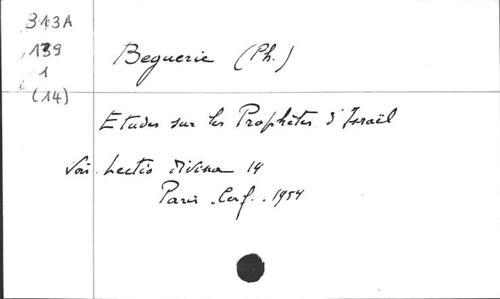 313A
139
1
(14)
Beguerie (Ph.)
Etudes sur les Prophètes d'Israël
Voir Lectio divina 14
Paris. Cerf. 1954